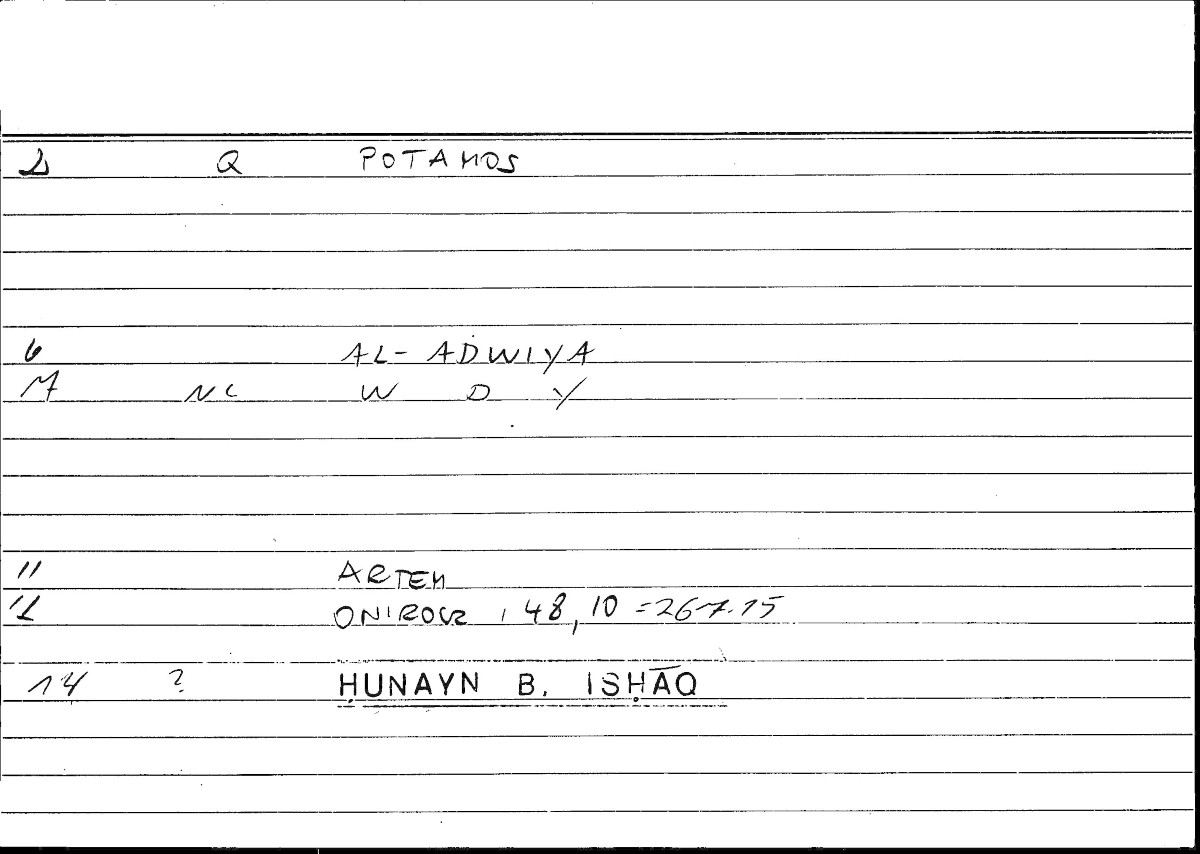 2 Q POTAMOS
6 AL-ADWIYA
7 NC W D Y
11 ARTEM
12 48,10 = 267.15
14 ? ḤUNAYN B. ISḤĀQ